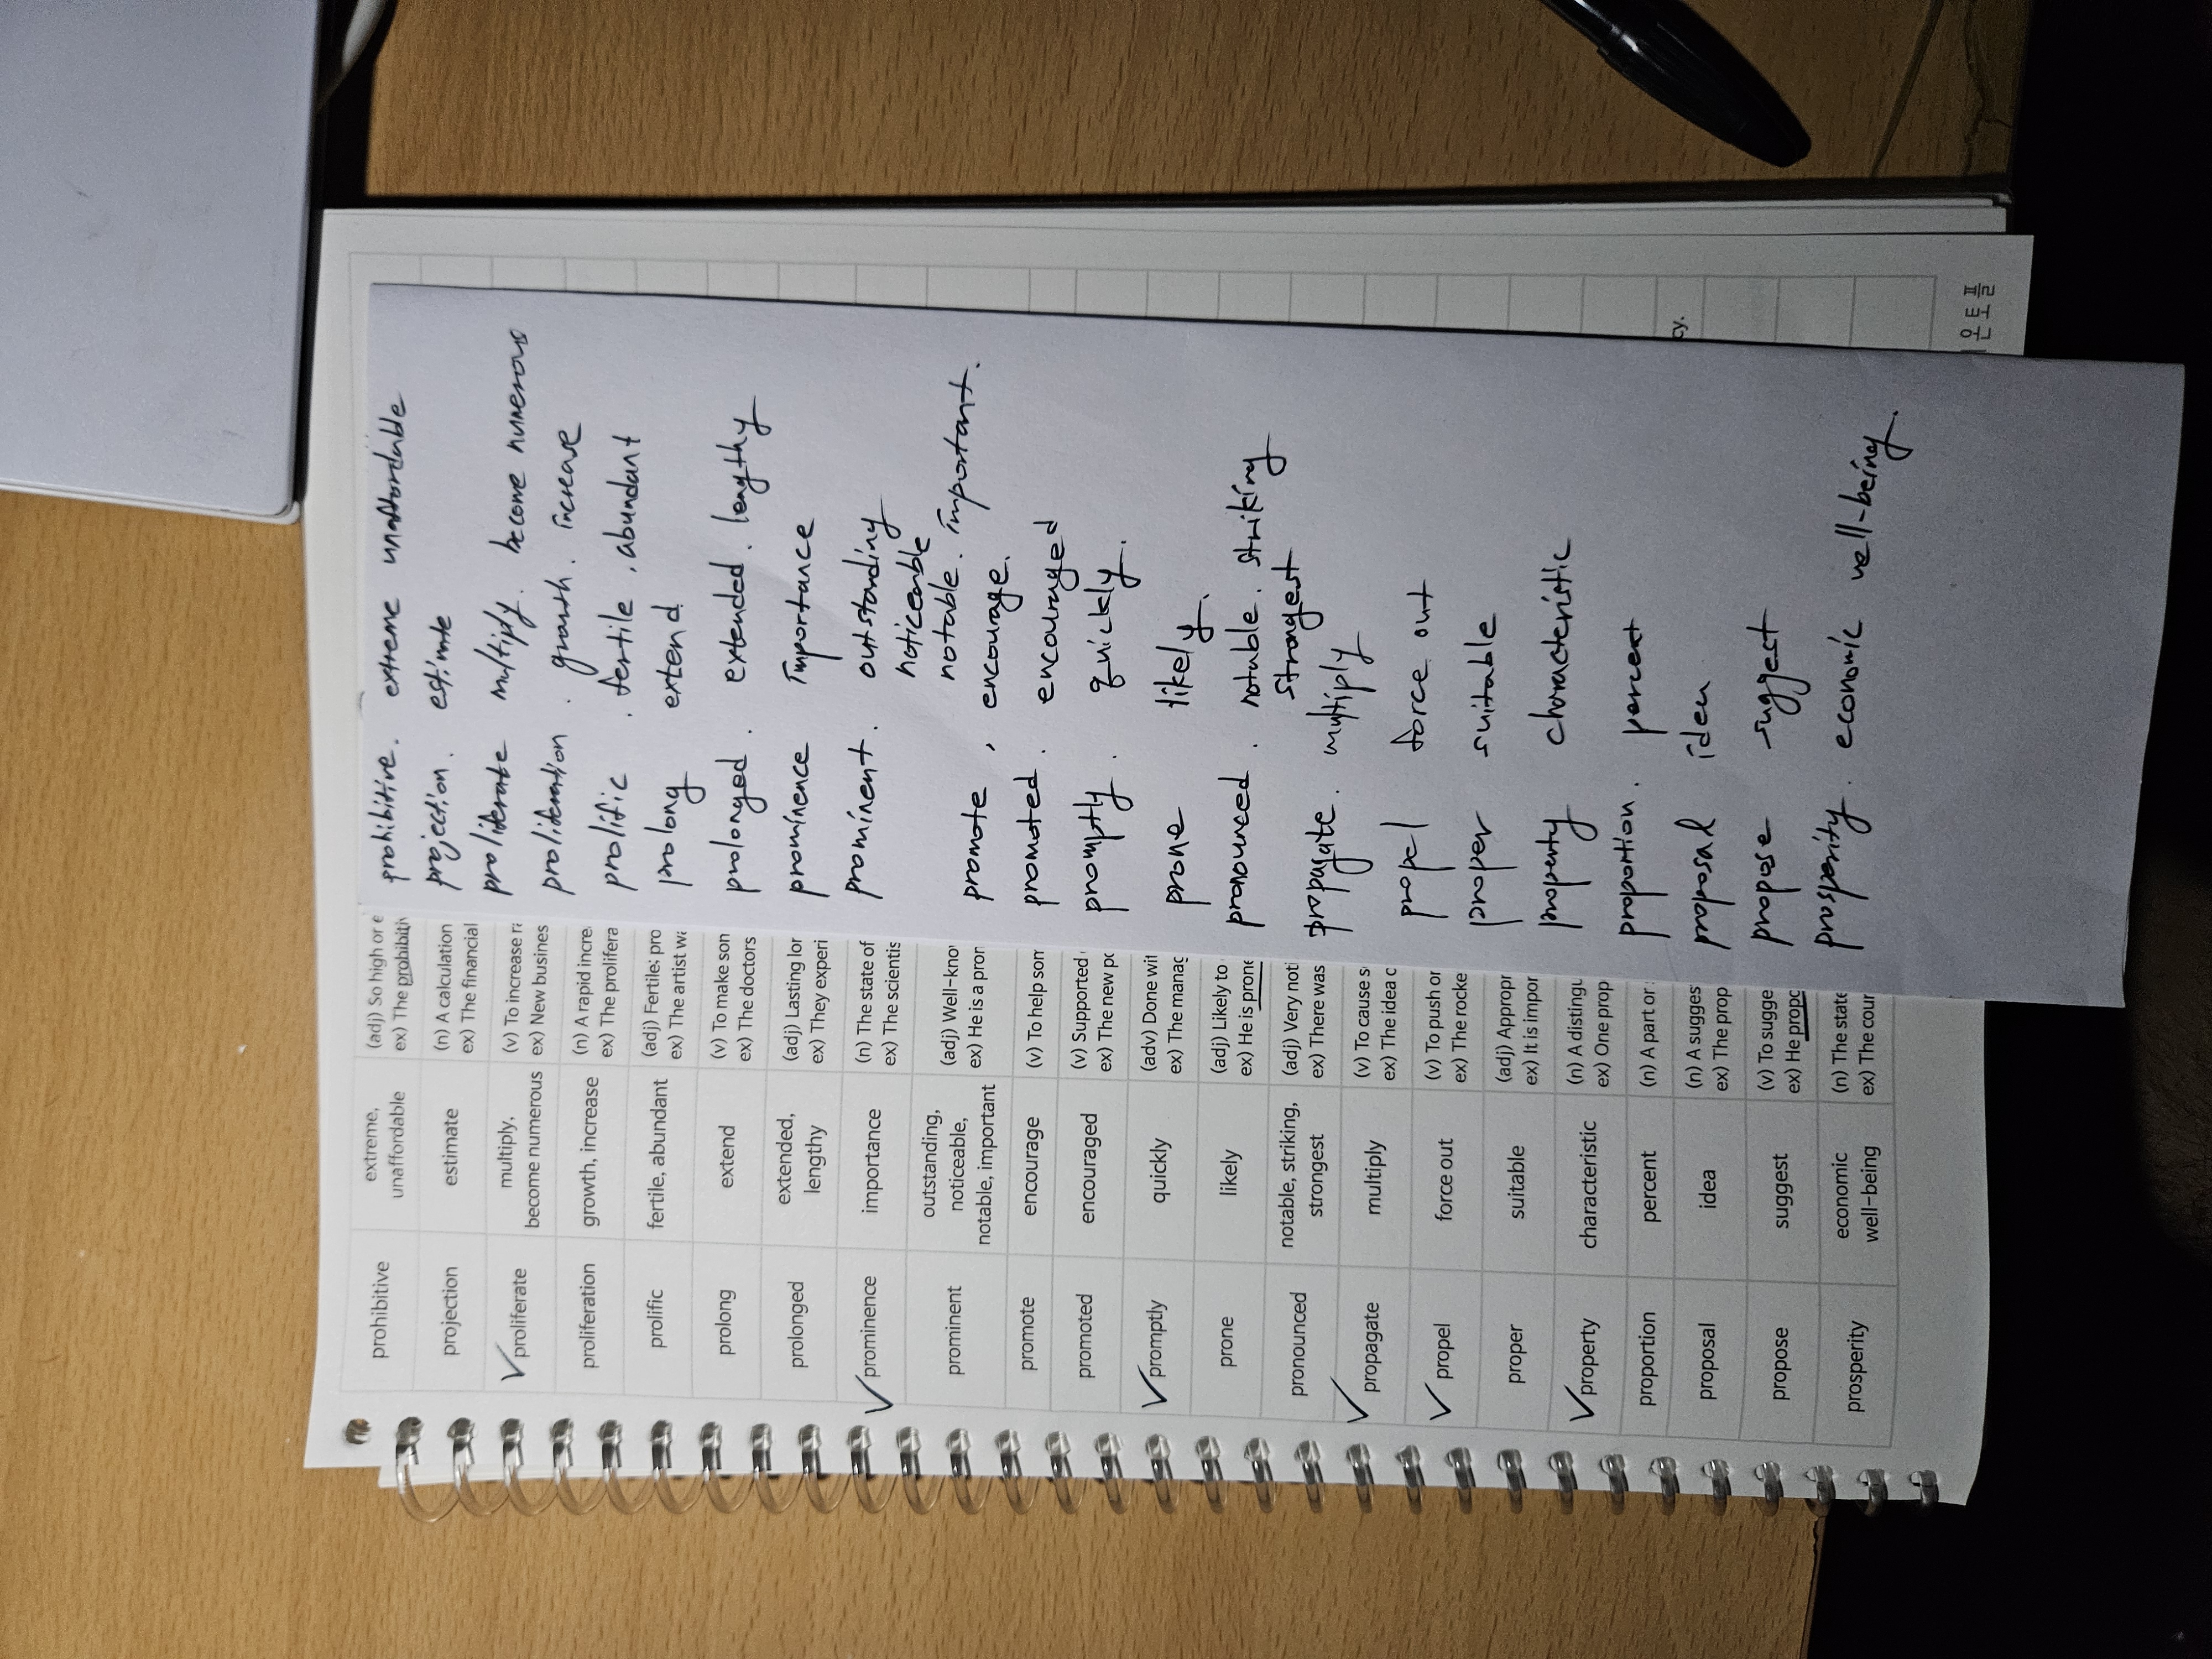 prohibitive
extreme,
unaffordable
(adj) So high or e
ex) The prohibitiv
projection
estimate
(n) A calculation
ex) The financial
proliferate
multiply,
become numerous
(v) To increase ra
ex) New business
proliferation
growth, increase
(n) A rapid incre
ex) The prolifera
prolific
fertile, abundant
(adj) Fertile; pro
ex) The artist wa
prolong
extend
(v) To make son
ex) The doctors
prolonged
extended,
lengthy
(adj) Lasting lor
ex) They experi
prominence
importance
(n) The state of
ex) The scientis
prominent
outstanding,
noticeable,
notable, important
(adj) Well-know
ex) He is a pron
promote
encourage
(v) To help som
promoted
encouraged
(v) Supported
ex) The new po
promptly
quickly
(adv) Done wit
ex) The manag
prone
likely
(adj) Likely to
ex) He is prone
pronounced
notable, striking,
strongest
(adj) Very noti
ex) There was
propagate
multiply
(v) To cause s
ex) The idea c
propel
force out
(v) To push or
ex) The rocke
proper
suitable
(adj) Appropr
ex) It is impor
property
characteristic
(n) A distingu
ex) One prop
proportion
percent
(n) A part or
proposal
idea
(n) A sugges
ex) The prop
propose
suggest
(v) To sugge
ex) He propo
prosperity
economic
well-being
(n) The state
ex) The cour
prohibitive. extreme unaffordable
projection. estimate
proliferate multiply. become numerous
proliferation . growth. increase
prolific . fertile, abundant
prolong extend
prolonged. extended. lengthy
prominence importance
prominent. outstanding
noticeable
notable. important.
promote, encourage.
promoted. encouraged
promptly. quickly.
prone likely.
pronounced. notable. striking
strongest
propagate. multiply
propel force out
proper suitable
property characteristic
proportion. percent
proposal idea
propose suggest
prosperity. economic well-being.
cy.